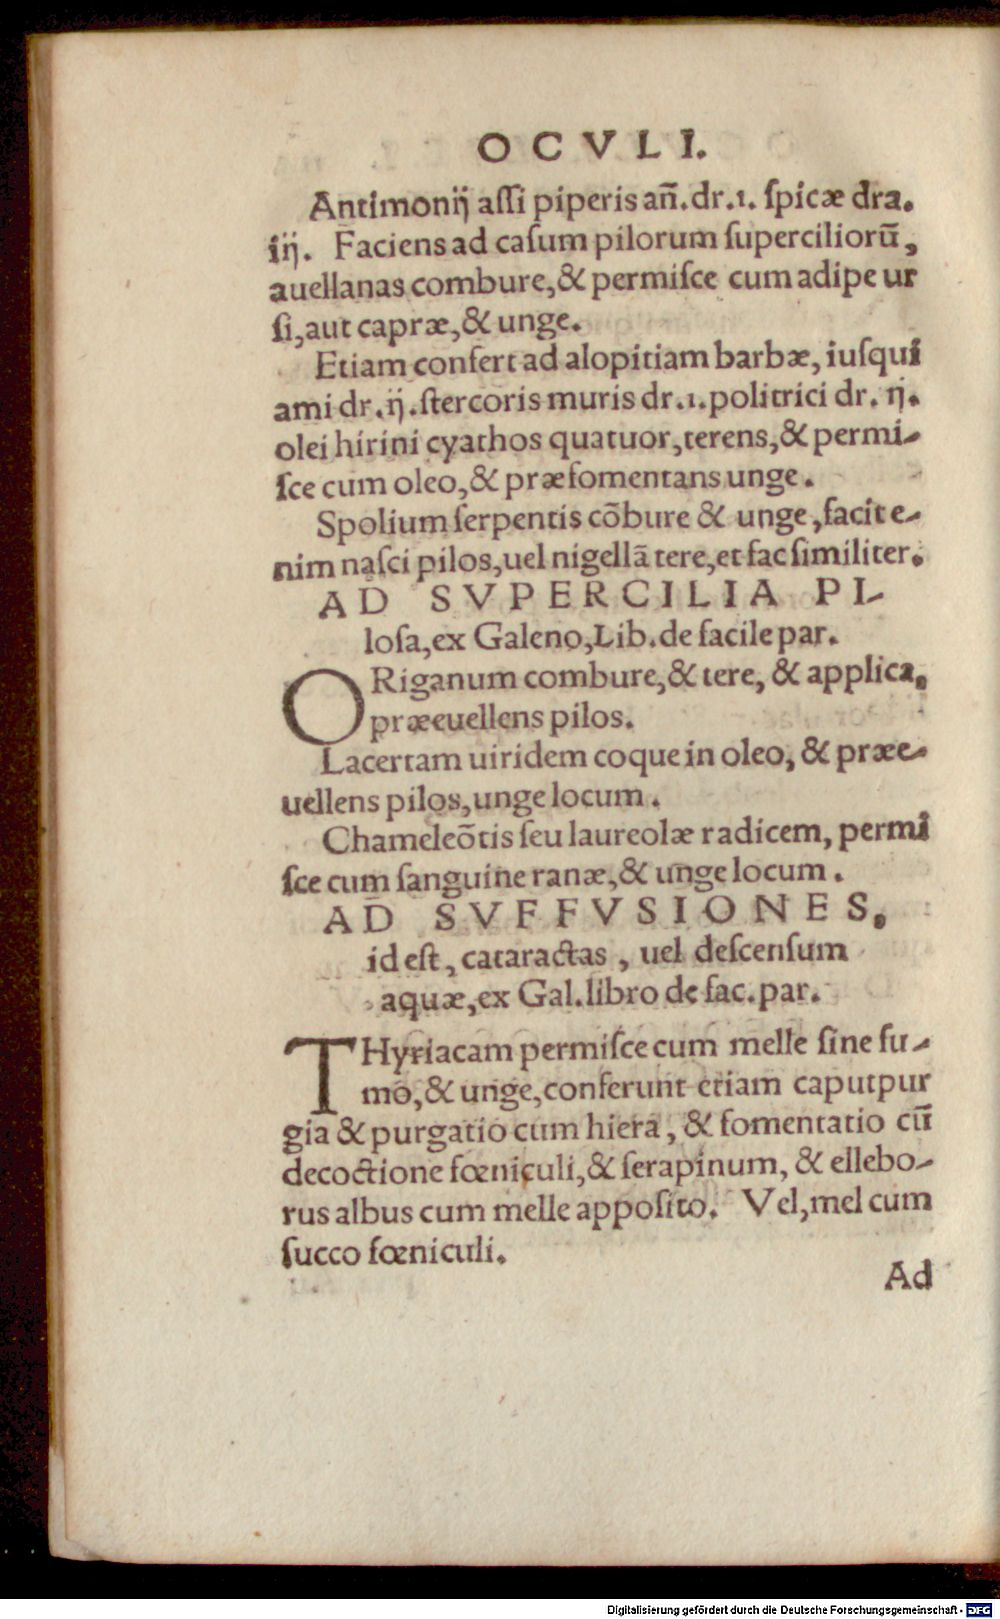 OCVLI.
Antimonij aſſi piperis an̄. dr.1. ſpicæ dra.
iij. Faciens ad caſum pilorum ſuperciliorū,
auellanas combure,& permiſce cum adipe ur
ſi,aut capræ,& unge.
Etiam confert ad alopitiam barbæ, iuſqui
ami dr.ij.ſtercoris muris dr.1.politrici dr. ij.
olei hirini cyathos quatuor,terens,& permi-
ſce cum oleo,& præfomentans unge.
Spolium ſerpentis cōbure & unge,facit e-
nim naſci pilos,uel nigellā tere,et fac ſimiliter.
AD SVPERCILIA PI-
loſa,ex Galeno,Lib.de facile par.
ORiganum combure,& tere, & applica,
præeuellens pilos.
Lacertam uiridem coque in oleo, & præe-
uellens pilos,unge locum.
Chameleōtis ſeu laureolæ radicem, permi
ſce cum ſanguine ranæ,& unge locum.
AD SVFFVSIONES,
id eſt, cataractas, uel deſcenſum
aquæ,ex Gal.libro de fac.par.
THyriacam permiſce cum melle ſine fu-
mo,& unge,conferunt etiam caputpur
gia & purgatio cum hiera, & fomentatio cū
decoctione fœniculi,& ſerapinum, & ellebo-
rus albus cum melle appoſito. Vel,mel cum
ſucco fœniculi.
Ad
Digitalisierung gefördert durch die Deutsche Forschungsgemeinschaft - DFG